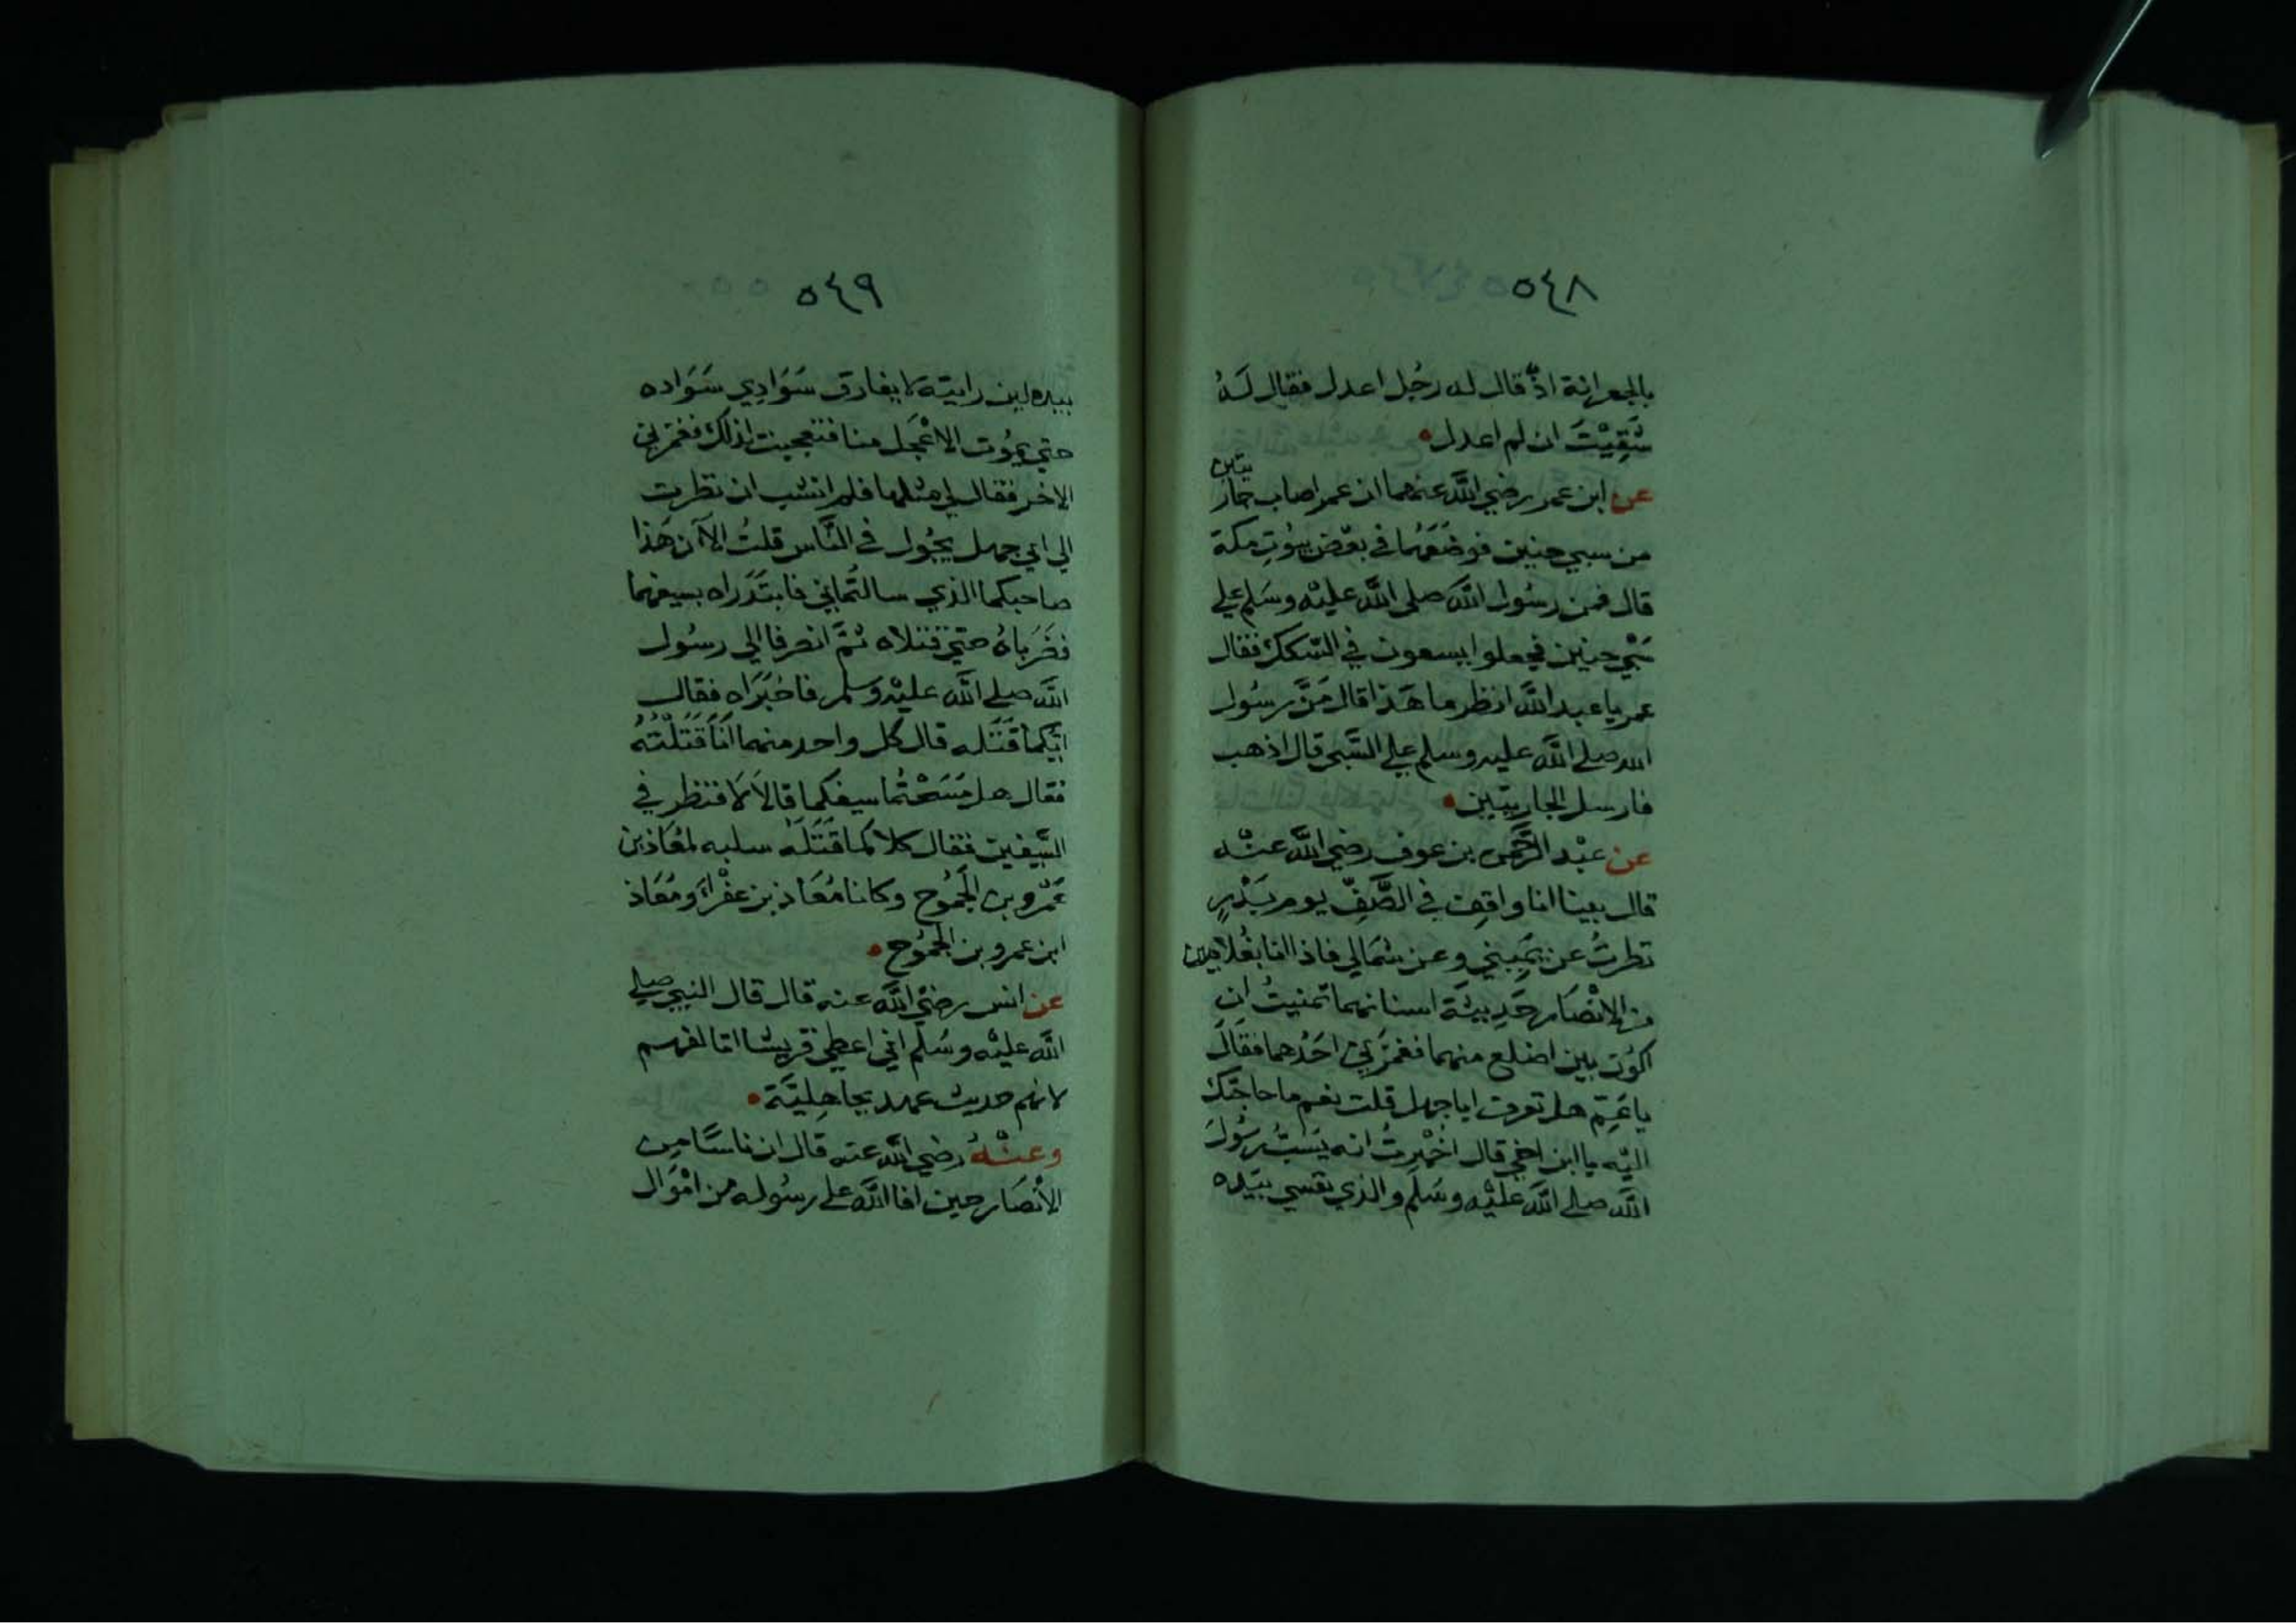 ٥٤٨
بالجعرانة اذ قال له رجُل اعدل فقال لَهُ
شَقِيْتَ ان لم اعدل
عن ابن عمر رضي اللَّه عنهما ان عمر اصاب جاريتين
من سبي حنين فوضعَهُما في بعْض بيُوتِ مكة
قال فمن رسُول اللَّه صلى اللَّه عليْه وسَلم علي
سَبْي حنين فجعلوا يسعون في السّكك فقال
عمر يا عبد اللَّه انظر ما هَذا قال مَنَّ رسُول
الله صلي اللَّه عليه وسلم علي السَّبي قال اذهب
فارسل الجاريتين
عن عبْد الرَّحمن بن عوف رضي اللَّه عنْه
قال بينا انا واقِف في الصَّفِّ يوم بَدْرٍ
نظرتُ عن يَمِيني وعن شمَالي فاذا انا بغُلامين
من الانْصَار حَدِيثة اسنانهما تمنيتُ ان
اكوُن بين اضلع منهما فغمزَني احَدُهما فقالَ
يا عَمِّ هل تعرف ابا جهل قلت نعم ما حاجتك
اليْه يا ابن اخي قال اُخْبِرتُ انه يَسَبُّ رسُولَ
اللَّه صلي اللَّه عليْه وسَلم والذي نفسي بيَده
٥٤٩
بيده لين رايته لا يفارق سَوَادِي سَوَاده
حتي يموُت الاعْجَل منا فتعجبت لذلك فغمزني
الاخر فقال لي مثلها فلم انشب ان نظرت
الي ابي جهل يجُول في النَّاس قلتُ الا ان هَذا
صاحبكما الذي سالتُماني فابتَدَراه بسيفهما
فضَرَباهُ حتي قتلاه ثمَّ انصرفا الي رسُول
اللَّه صلي اللَّه عليْه وسلم فاخبَرَاه فقال
ايّكما قَتَله قال كل واحد منهما اَنَا قَتَلْتُه
فقال هل مَسَحْتُما سيفكما قالاَ لا فنظر في
السَّيفين فقال كلاكما قَتَلَهُ سلبه لمعَاذ بن
عَمْرو بن الجَمُوح وكانا مُعَاذ بن عفْراَ ومُعَاذ
ابن عمرو بن الجمُوح
عن انس رضيْ اللَّه عنه قال قال النبي صلي
اللَّه عليْه وسُلم اني اعطي قريشا اتالفهم
لانهم حديث عهد بجاهِليّة
وعنْهُ رضي اللَّه عنه قال ان ناسًا من
الانْصَار حين افا اللَّه علي رسُوله من امْوَال